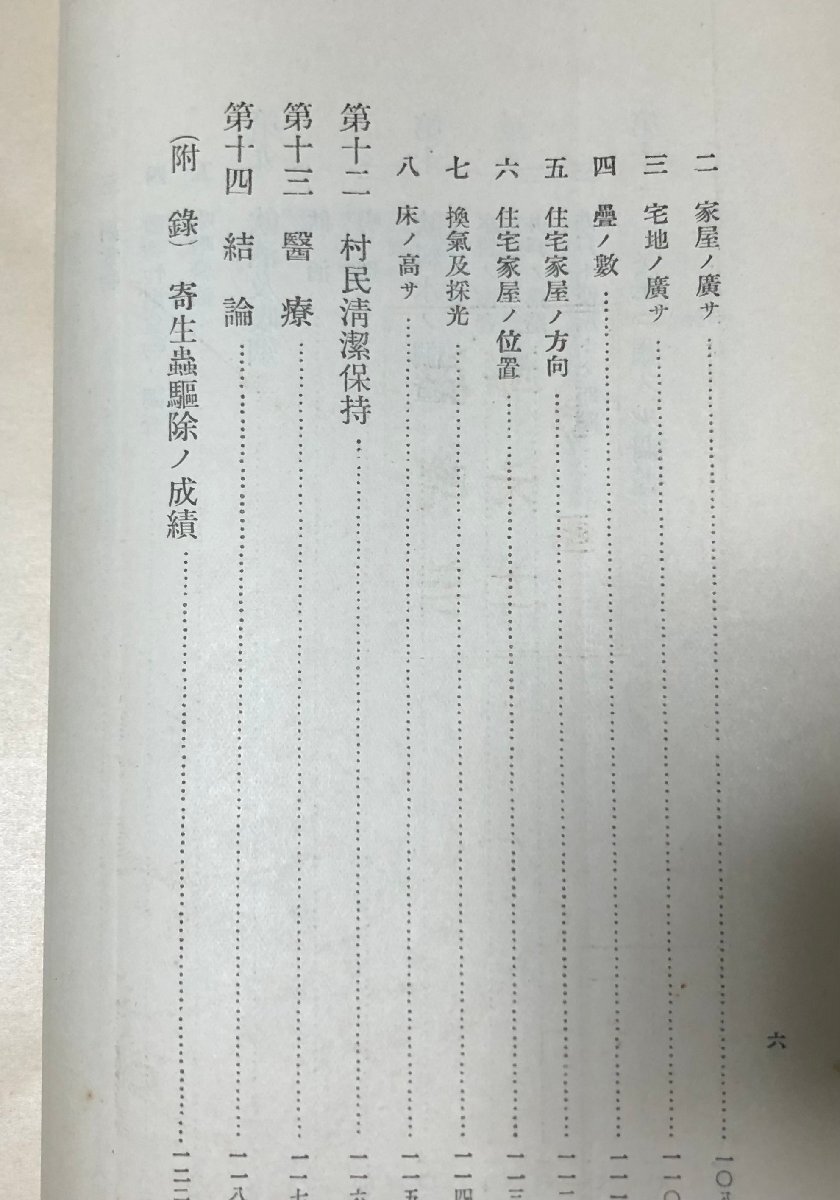 二 家屋ノ廣サ……一〇
三 宅地ノ廣サ……一一〇
四 疊ノ數……一一
五 住宅家屋ノ方向……一一二
六 住宅家屋ノ位置……一一三
七 換氣及採光……一一四
八 床ノ高サ……一一五
第十二 村民淸潔保持……一一六
第十三 醫療……一一七
第十四 結論……一一八
(附錄) 寄生蟲驅除ノ成績……一二
六